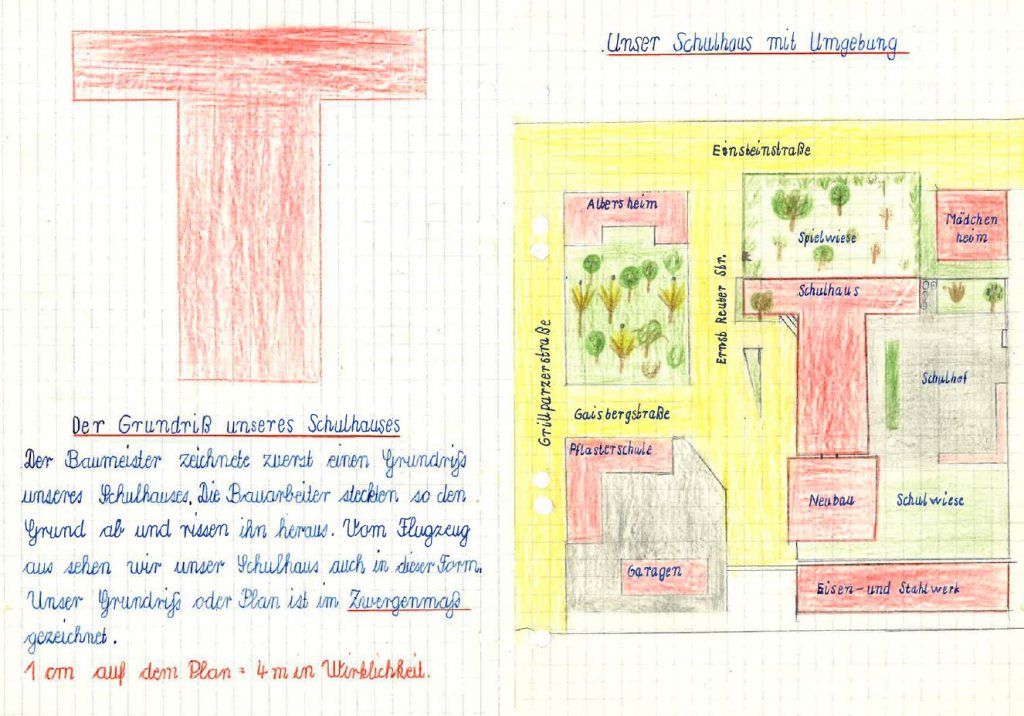 Der Grundriß unseres Schulhauses
Der Baumeister zeichnete zuerst einen Grundriß
unseres Schulhauses. Die Bauarbeiter steckten so den
Grund ab und rissen ihn heraus. Vom Flugzeug
aus sehen wir unser Schulhaus auch in dieser Form.
Unser Grundriß oder Plan ist im Zwergenmaß
gezeichnet.
1 cm auf dem Plan = 4 m in Wirklichkeit.
Unser Schulhaus mit Umgebung
Einsteinstraße
Albersheim
Spielwiese
Mädchen
heim
Ernst Reuter Str.
Schulhaus
Grillparzerstraße
Schulhof
Gaisbergstraße
Pflasterschule
Neubau
Schulwiese
Garagen
Eisen- und Stahlwerk